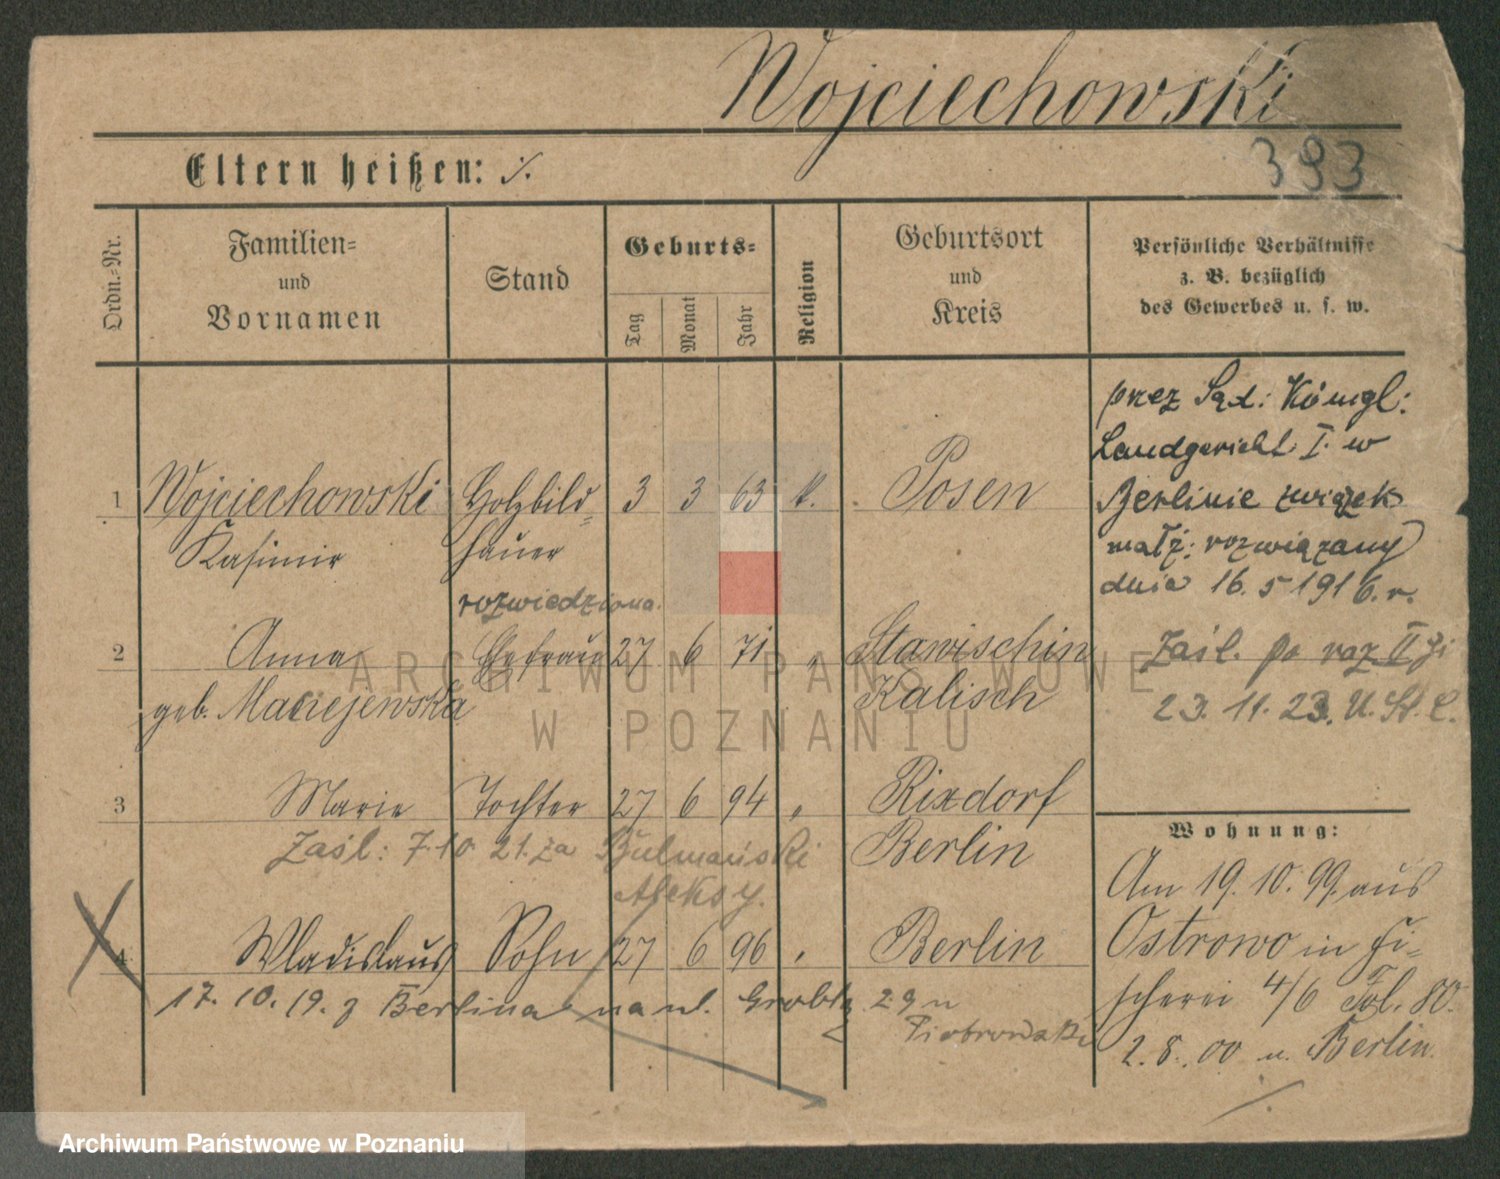 Wojciechowski
393
Eltern heißen: ./.
Ordn.-Nr.
Familien-
und
Vornamen
Stand
Geburts-
Tag
Monat
Jahr
Religion
Geburtsort
und
Kreis
Persönliche Verhältnisse
z. B. bezüglich
des Gewerbes u. s. w.
przez Sąd: Königl:
Landgericht I. w
Berlinie związek
małż: rozwiązany
dnia 16. 5 1916. r.
1 Wojciechowski Holzbild= 3 3 63 k. Posen
Kasimir hauer
rozwiedziona
2 Anna Ehefrau 27 6 71 " Stawischin
geb. Maciejewska Kalisch
Zaśl. po raz II
23. 11. 23. U. St. C.
3 Marie Tochter 27 6 94 " Rixdorf
Zaśl: 7.10 21. za Bulmański Berlin
Aleksy.
4 Wladislaus Sohn 27 6 96 " Berlin
17. 10. 19. z Berlina na ul. Grobla 29 u
Piotrowski
Wohnung:
Am 19. 10. 99. aus
Ostrowo in Fi-
scherei 4/6 Fol. 80.
2. 8. 00 n. Berlin.
ARCHIWUM PAŃSTWOWE
W POZNANIU
Archiwum Państwowe w Poznaniu